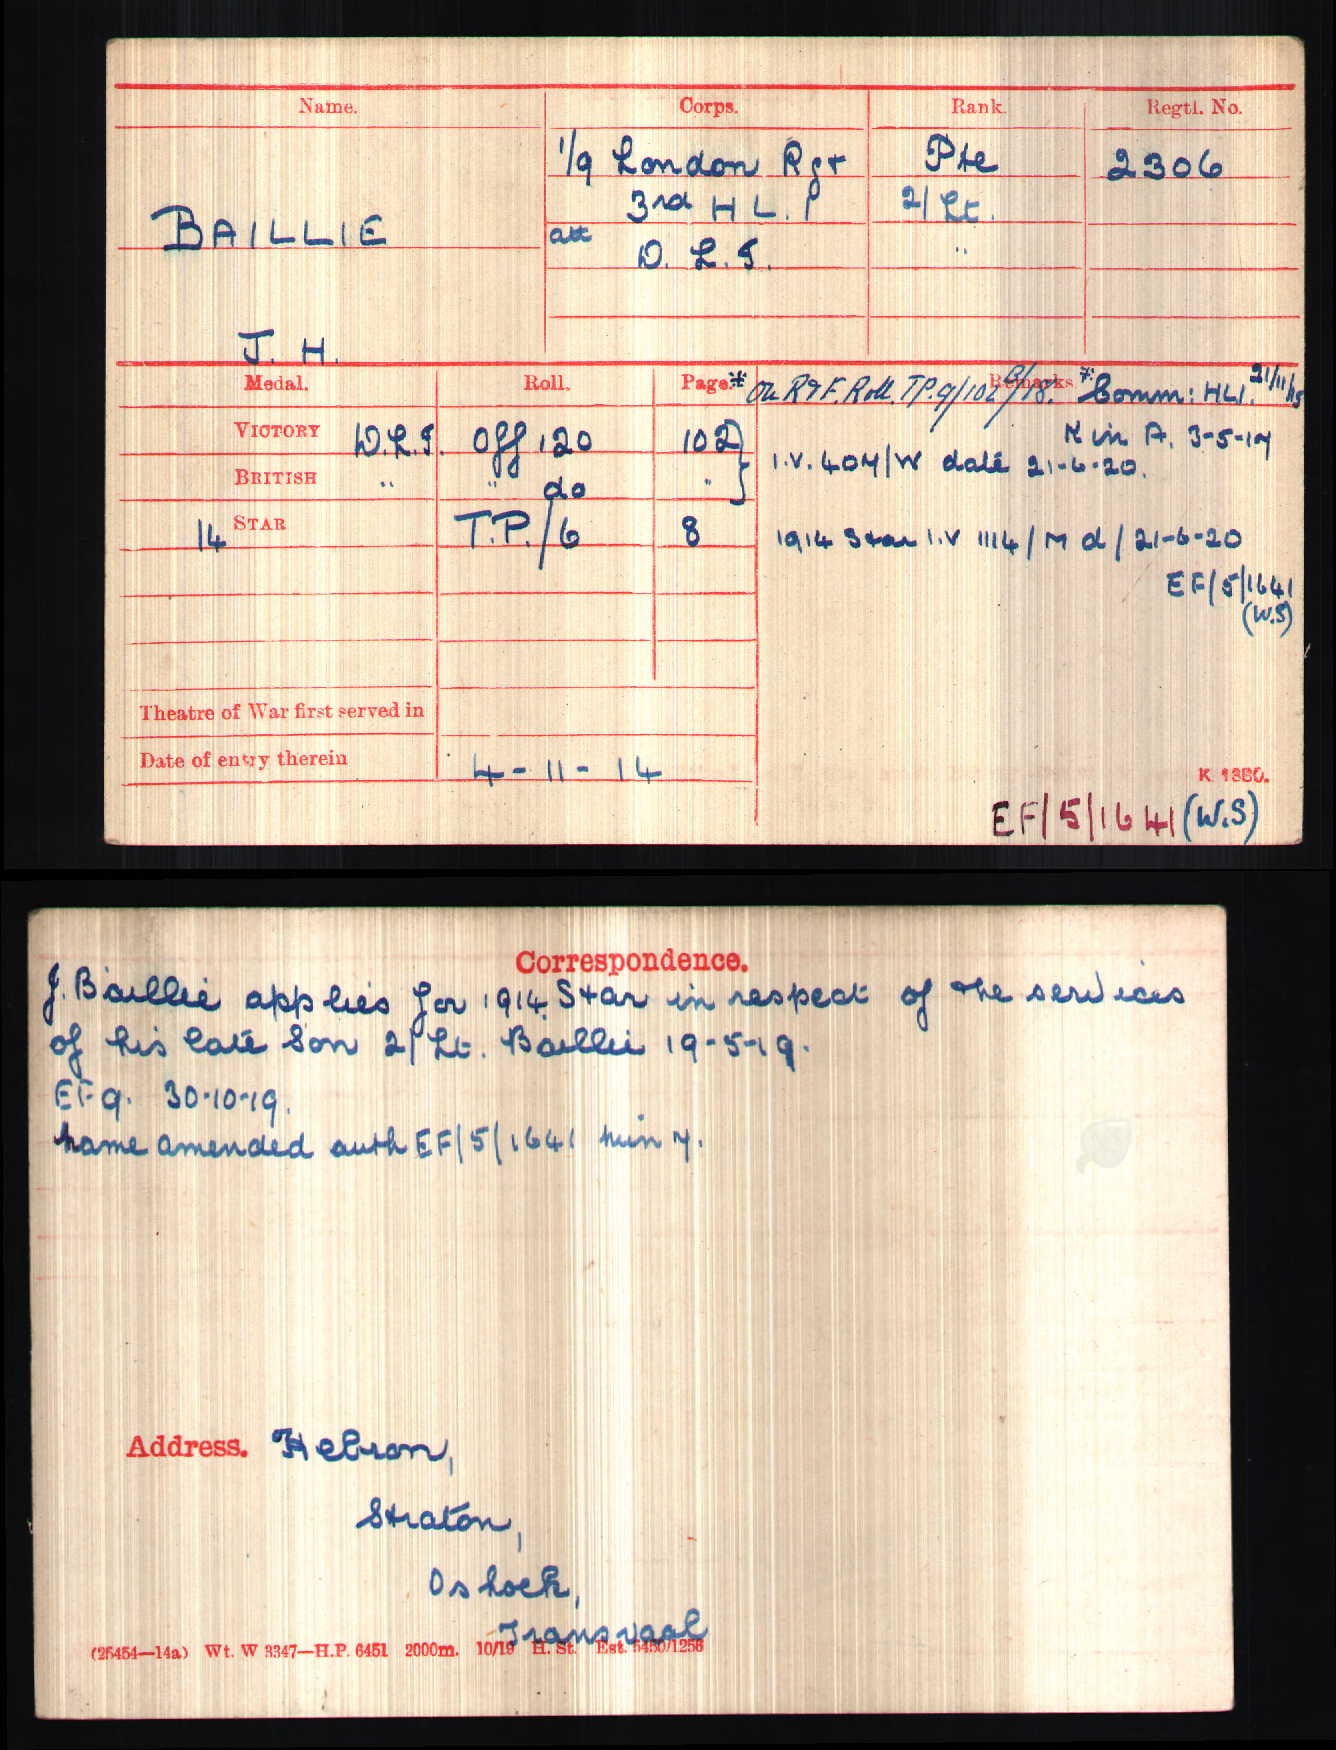 Name. Corps. Rank. Regtl. No.
1/9 London Rgt Pte 2306
3rd H L. I 2/Lt.
BAILLIE att D. L. I. "
J. H.
Medal. Roll. Page* Remarks
On R & F. Roll. TP. 9/102 B/18. * Comm: HLI. 21/11/15
VICTORY D.L.I. Off 120 102 } K in A. 3-5-17
I.V. 407/W date 21-6-20.
BRITISH " " do "
14 STAR T.P./6 8 1914 Star I.V 1114/M d/21-6-20
EF/5/1641
(W.S)
Theatre of War first served in
Date of entry therein 4-11-14
K 1380.
EF/5/1641 (W.S)
Correspondence.
J. Baillie applies for 1914 Star in respect of the services
of his late Son 2/Lt. Baillie 19-5-19.
EF9. 30-10-19.
Name amended auth EF/5/1641 Min 7.
Address. Hebron,
Straton,
Oshoek,
Transvaal
(25454—14a) Wt. W 3347—H.P. 6451 2000m. 10/19 H. St. Est. 5450/1256